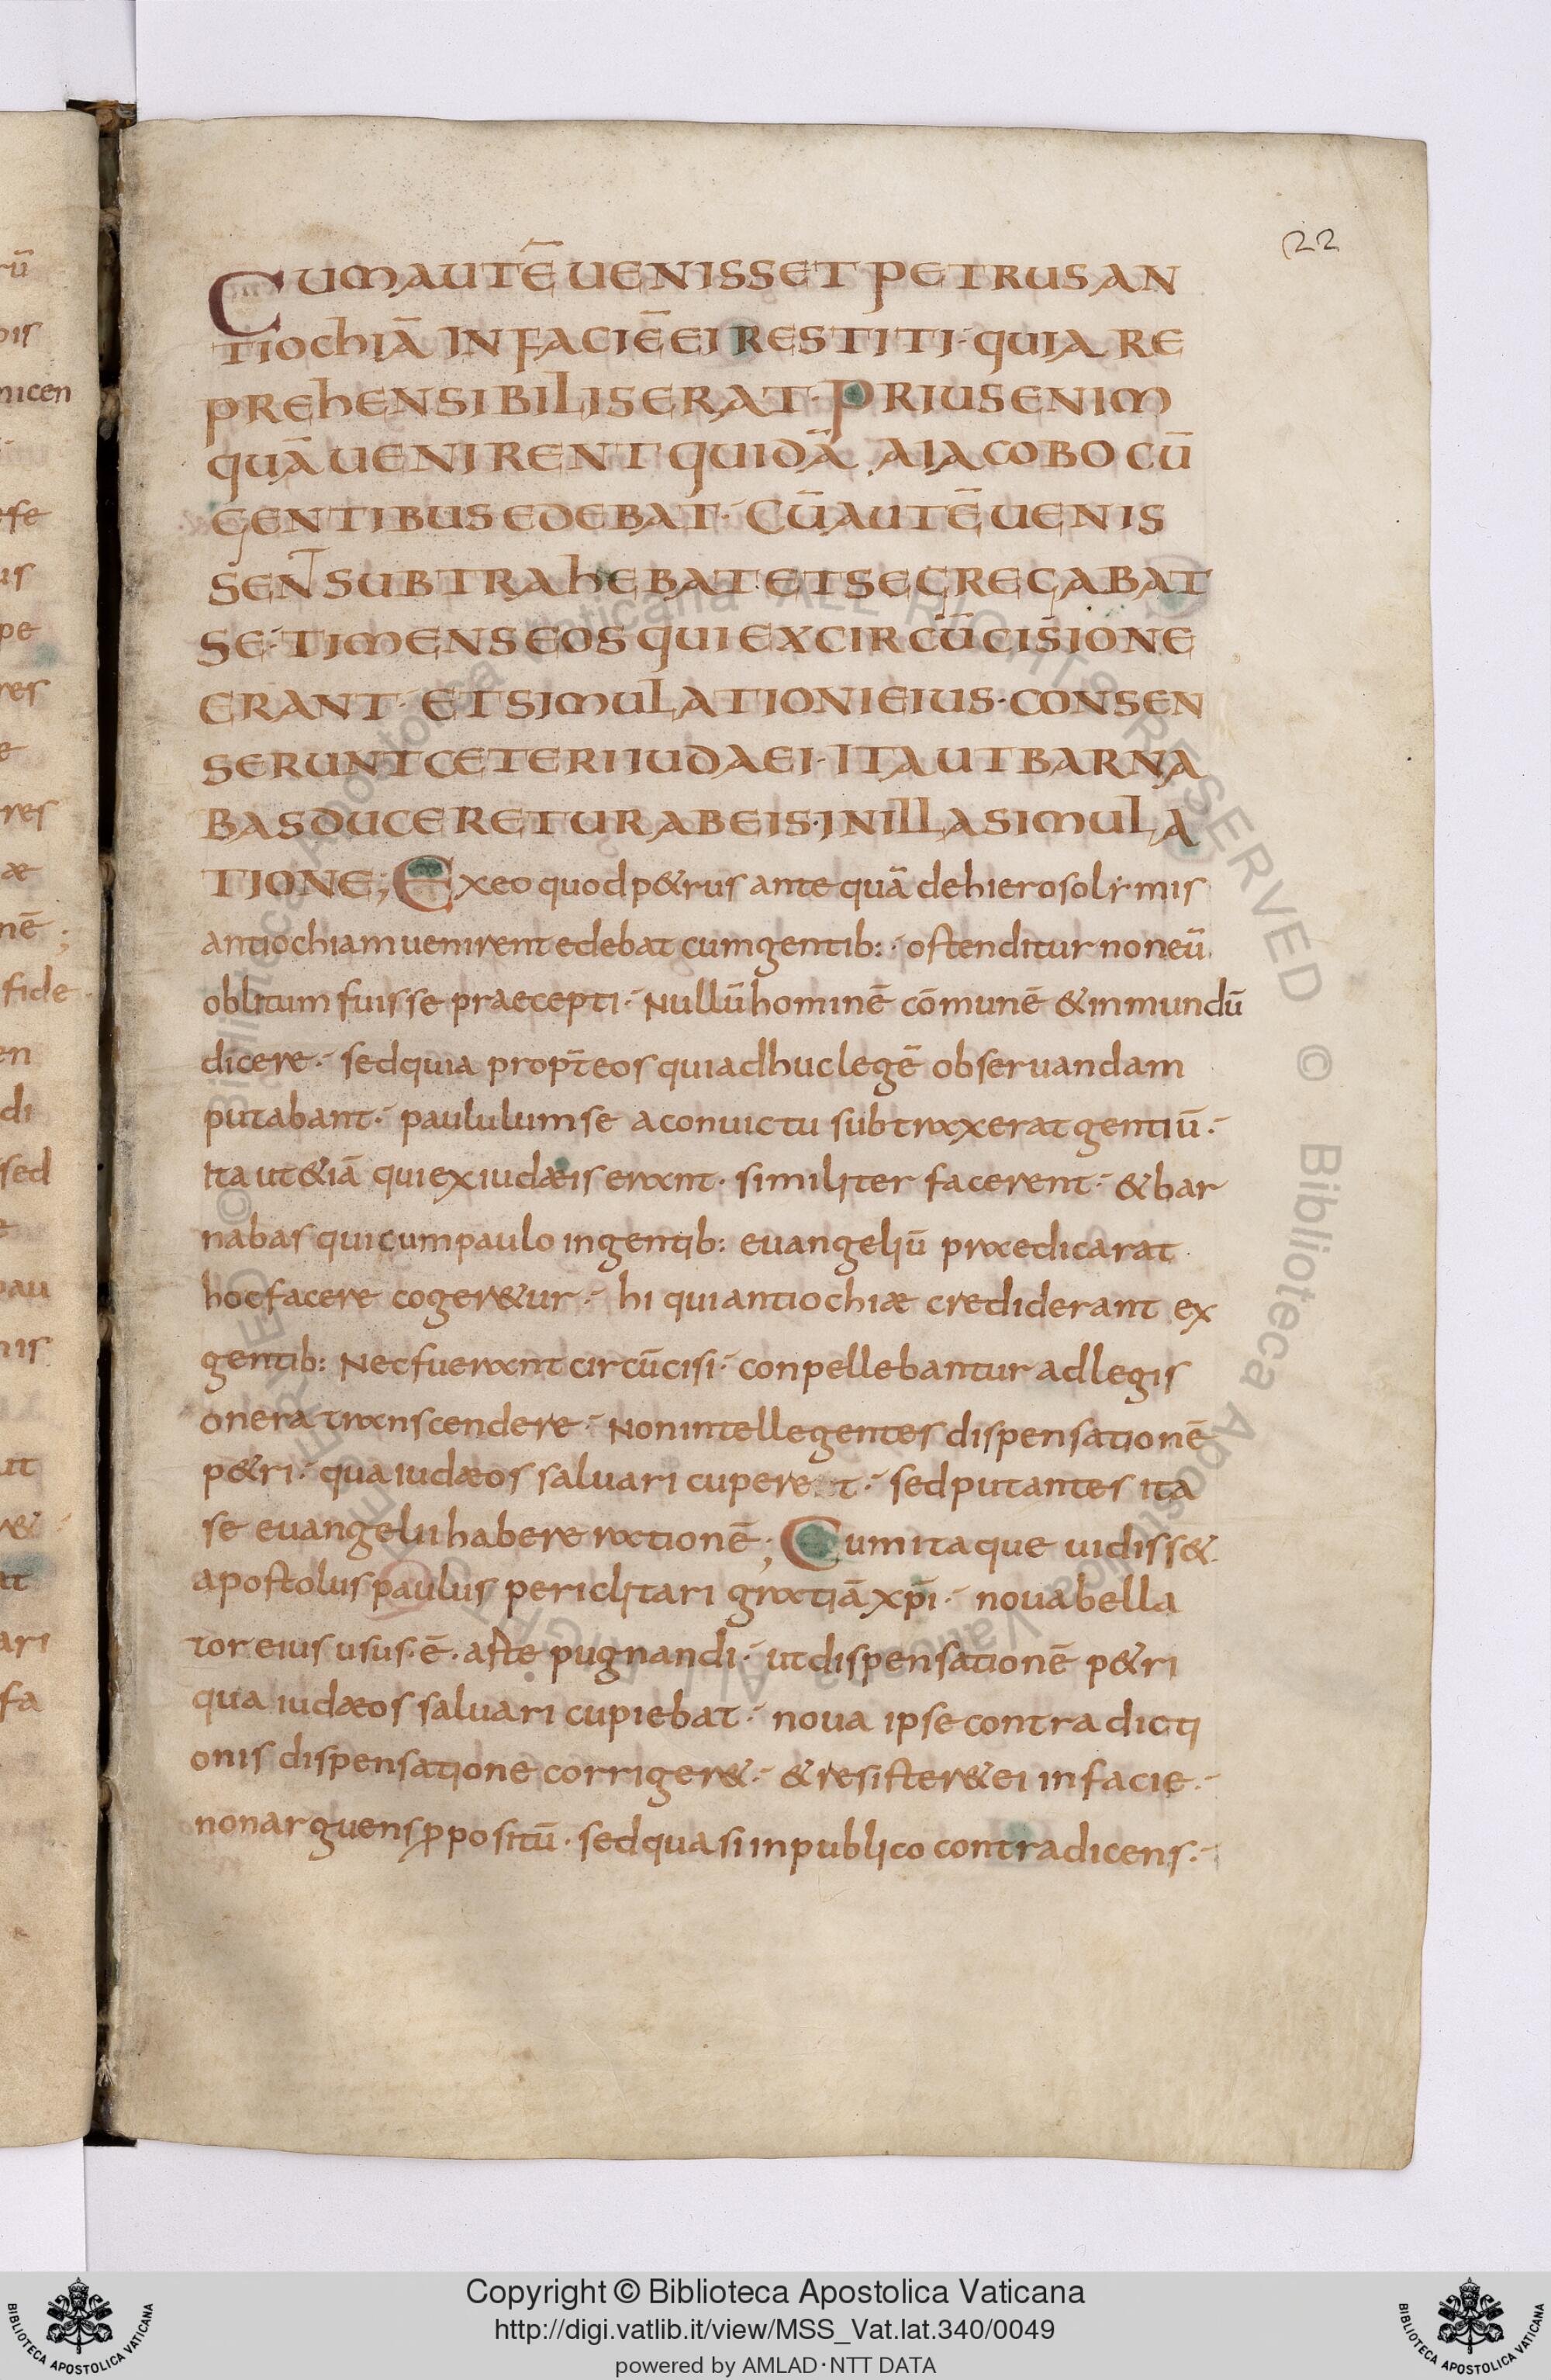 22
CUMAUTĒ UENISSET PETRUS AN
TIOCHIĀ IN FACIĒ EI RESTITI· QUIA RE
PREHENSIBILIS ERAT· PRIUS ENIM
QUĀ UENIRENT QUIDĀ A IACOBO CŪ
GENTIBUS EDEBAT· CŪ AUTĒ UENIS
SENT SUBTRAHEBAT· ET SEGREGABAT
SE· TIMENS EOS QUI EX CIRCŪCISIONE
ERANT· ET SIMULATIONI EIUS· CONSEN
SERUNT CETERI IUDAEI· ITA UT BARNA
BAS DUCERETUR AB EIS· IN ILLA SIMULA
TIONE; Ex eo quod p&rus ante quā de hierosolymis
antiochiam uenirent edebat cum gentib:· ostenditur non eū
oblitum fuisse praecepti· Nullū hominē cōmunē & inmundū
dicere· sed quia propt̄ eos qui adhuc legē obseruandam
putabant· paululum se a conuictu subtraxerat gentiū·
Ita ut &iā qui ex iudæis erant· similiter facerent· & bar
nabas qui cum paulo in gentib: euangeliū praedicarat
hoc facere coger&ur· hi qui antiochiæ crediderant ex
gentib: Nec fuerant circūcisi· conpellebantur ad legis
onera transcendere· Non intellegentes dispensationē
p&ri· qua iudæos saluari cupere t· sed putantes ita
se euangelii habere rationē; Cum itaque uidiss&
apostolus paulus periclitari gratiā xp̄i· noua bella
tor eius usus· ē· aste pugnandi· ut dispensationē p&ri
qua iudæos saluari cupiebat· noua ipse contradicti
onis dispensatione corriger&· & resister& ei in facie·
non arguens ꝓpositū· sed quasi in publico contradicens·
rū
nicen
fe
us
pe
res
e
res
æ
nē;
fide
en
di
sed
e
pau
nis
ut
at
ari
fa
© Biblioteca Apostolica Vaticana ALL RIGHTS RESERVED
Copyright © Biblioteca Apostolica Vaticana
http://digi.vatlib.it/view/MSS_Vat.lat.340/0049
powered by AMLAD·NTT DATA
BIBLIOTECA APOSTOLICA VATICANA
BIBLIOTECA APOSTOLICA VATICANA